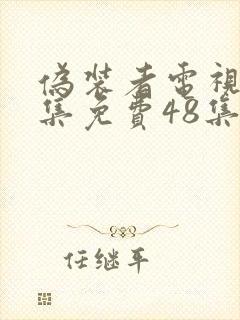 偽裝者電視
集免費48集
任继平